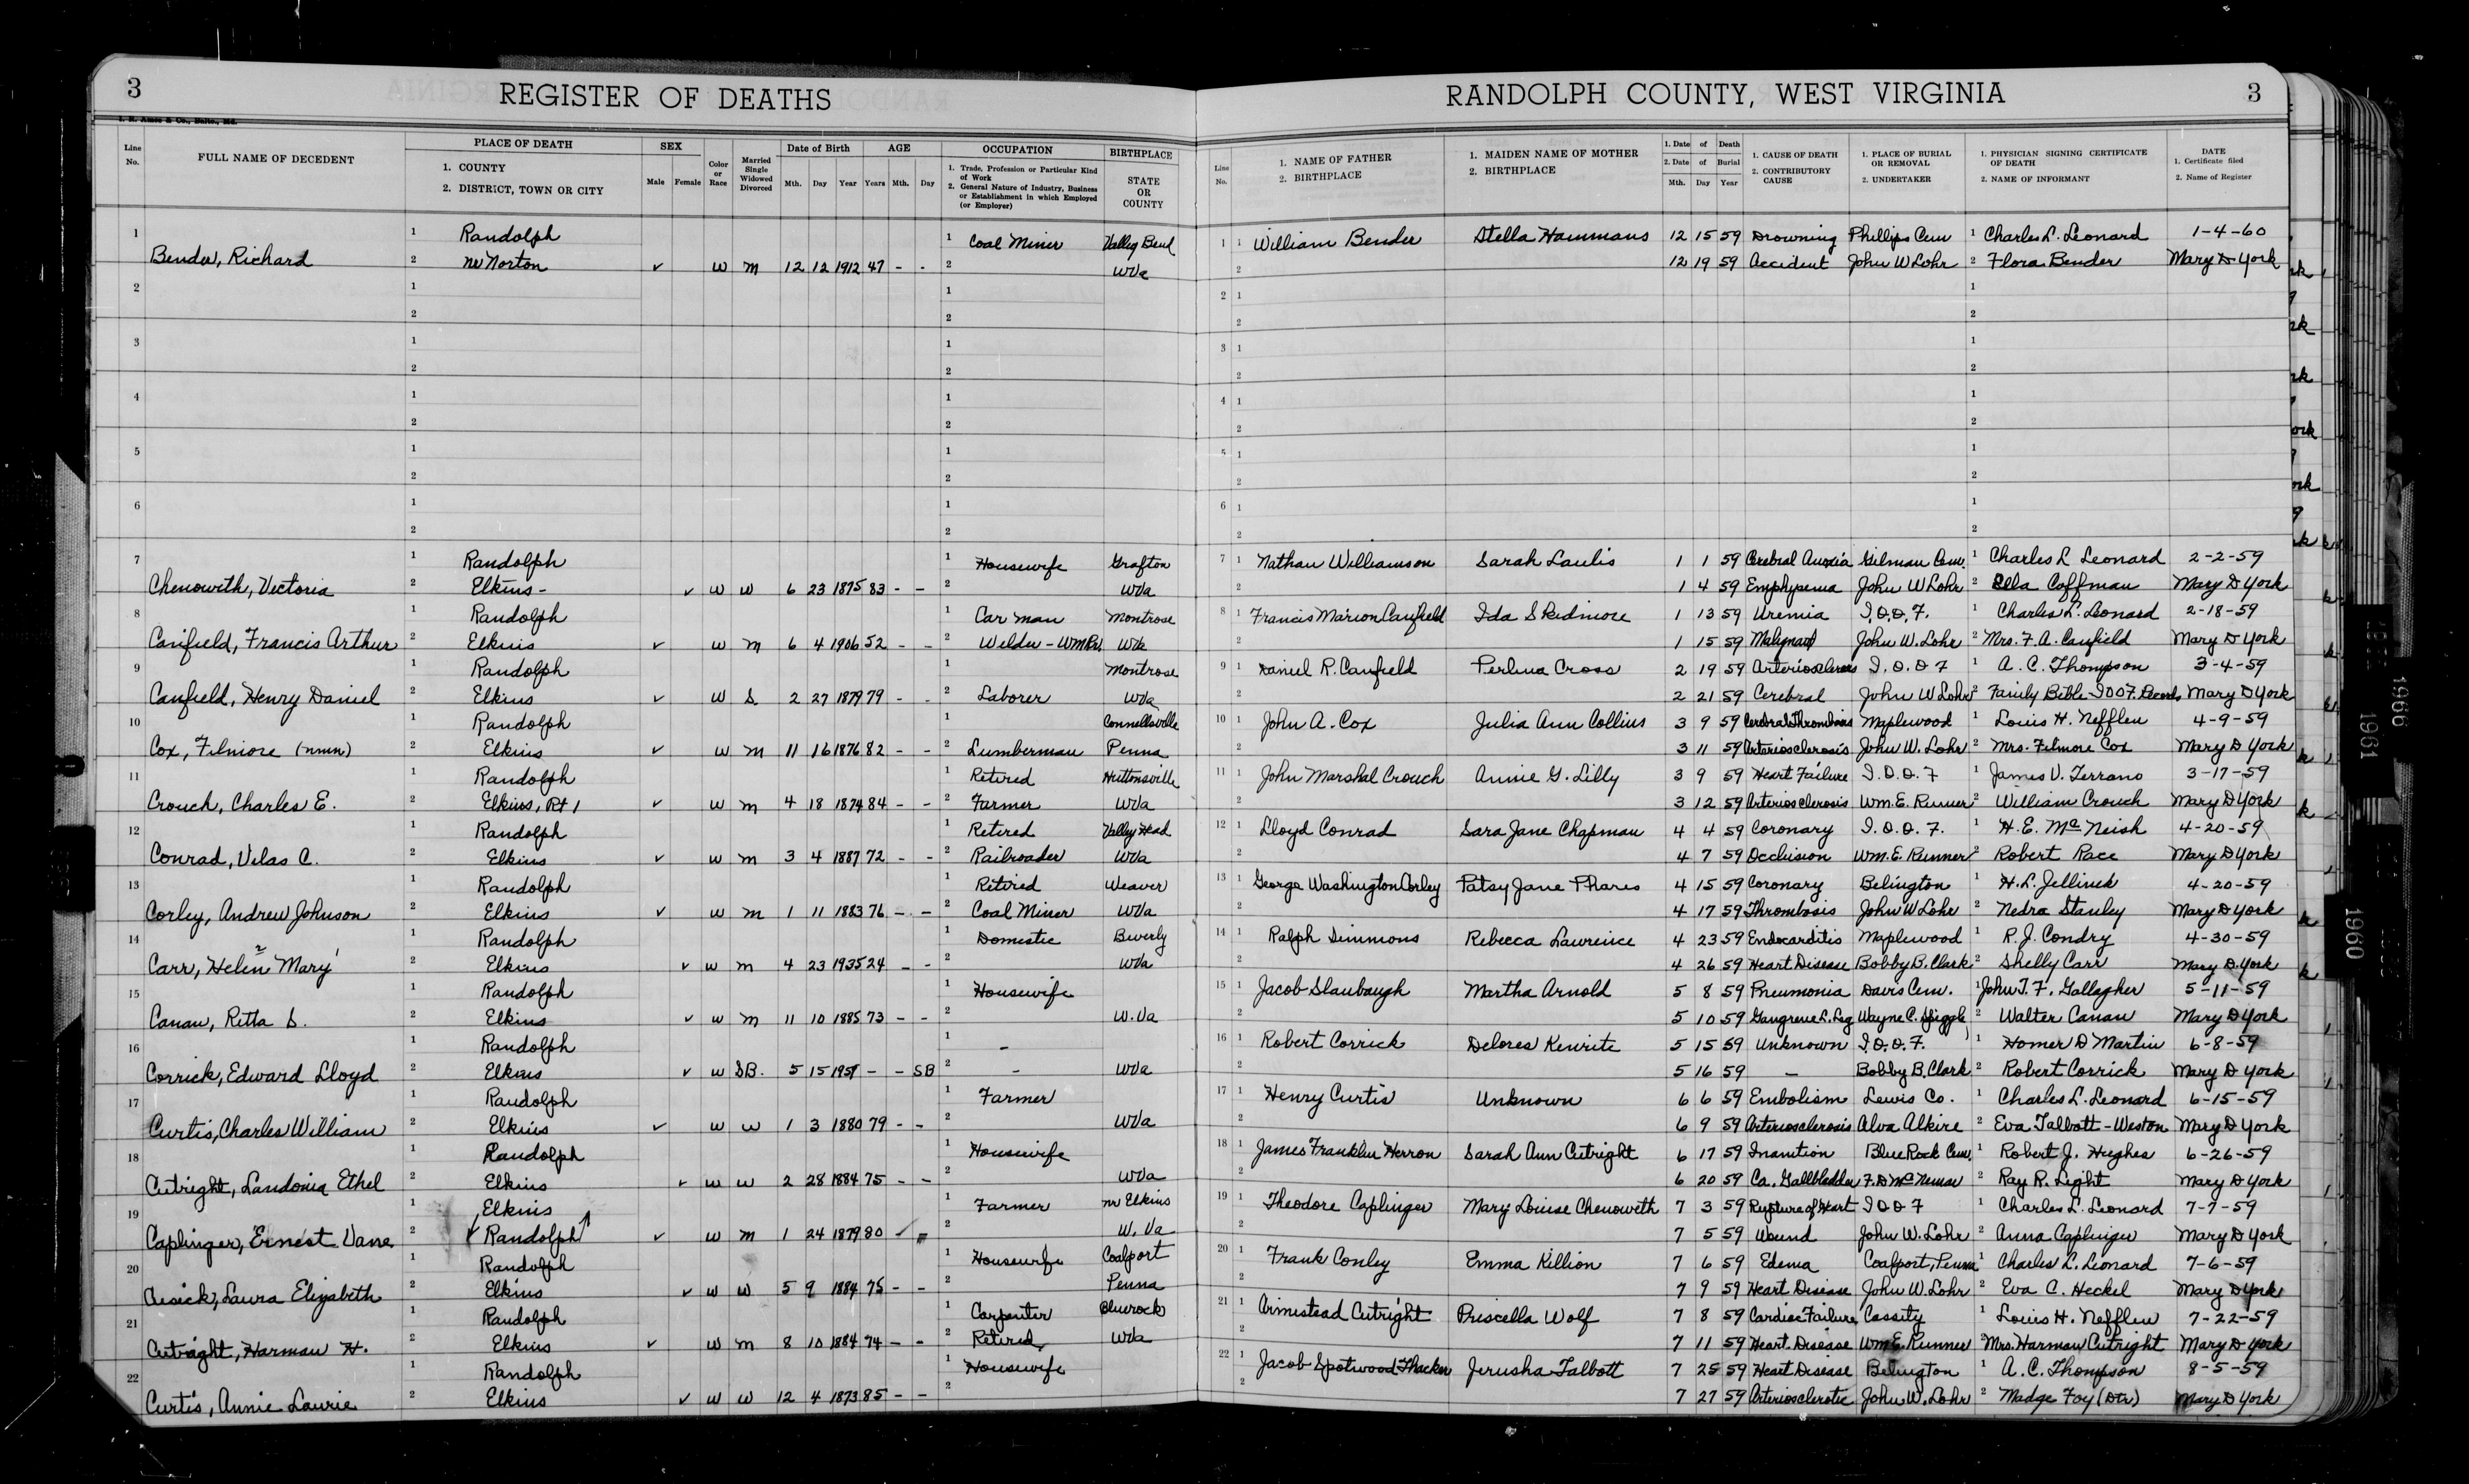 3 REGISTER OF DEATHS
RANDOLPH COUNTY, WEST VIRGINIA 3
Line No. FULL NAME OF DECEDENT PLACE OF DEATH 1. COUNTY 2. DISTRICT, TOWN OR CITY SEX Male Female Color or Race Married Single Widowed Divorced Date of Birth Mth. Day Year AGE Years Mth. Day OCCUPATION 1. Trade, Profession or Particular Kind of Work 2. General Nature of Industry, Business or Establishment in which Employed (or Employer) BIRTHPLACE STATE OR COUNTY
Line No. 1. NAME OF FATHER 2. BIRTHPLACE 1. MAIDEN NAME OF MOTHER 2. BIRTHPLACE 1. Date of Death 2. Date of Burial Mth. Day Year 1. CAUSE OF DEATH 2. CONTRIBUTORY CAUSE 1. PLACE OF BURIAL OR REMOVAL 2. UNDERTAKER 1. PHYSICIAN SIGNING CERTIFICATE OF DEATH 2. NAME OF INFORMANT DATE 1. Certificate filed 2. Name of Register
1 1 Randolph 1 Coal Miner Valley Bend 1 1 William Bender Stella Hammans 12 15 59 Drowning Phillips Cem 1 Charles L. Leonard 1-4-60
Bender, Richard 2 nr Norton ✓ W M 12 12 1912 47 - - 2 WVa 2 12 19 59 Accident John W Lohr 2 Flora Bender Mary D York
2 1 1 2 1 1
2 2 2 2
3 1 1 3 1 1
2 2 2 2
4 1 1 4 1 1
2 2 2 2
5 1 1 5 1 1
2 2 2 2
6 1 1 6 1 1
2 2 2 2
7 1 Randolph 1 Housewife Grafton 7 1 Nathan Williamson Sarah Laulis 1 1 59 Cerebral Anoxia Gilman Cem. 1 Charles L Leonard 2-2-59
Chenowith, Victoria 2 Elkins - ✓ W W 6 23 1875 83 - - 2 WVa 1 4 59 Emphysema John W Lohr 2 Ella Coffman Mary D York
8 1 Randolph 1 Car man Montrose 8 1 Francis Marion Canfield Ida Skidmore 1 13 59 Uremia I.O.O.F. 1 Charles L. Leonard 2-18-59
Canfield, Francis Arthur 2 Elkins ✓ W M 6 4 1906 52 - - 2 Welder - WMRy. WVa 2 1 15 59 John W. Lohr 2 Mrs. F. A. Canfield Mary D York
9 1 Randolph 1 Montrose 9 1 Daniel R. Canfield Perlina Cross 2 19 59 Arteriosclerosis I.O.O.F 1 A. C. Thompson 3-4-59
Canfield, Henry Daniel 2 Elkins ✓ W S. 2 27 1879 79 - - 2 Laborer WVa 2 2 21 59 Cerebral John W Lohr 2 Family Bible - IOOF. Records Mary D York
10 1 Randolph 1 Connellsville 10 1 John A. Cox Julia Ann Collins 3 9 59 Cerebral Thrombosis Maplewood 1 Louis H. Nefflen 4-9-59
Cox, Filmore (nmn) 2 Elkins ✓ W M 11 16 1876 82 - - 2 Lumberman Penna 2 3 11 59 Arteriosclerosis John W. Lohr 2 Mrs. Filmore Cox Mary D York
11 1 Randolph 1 Retired Huttonsville 11 1 John Marshal Crouch Annie G. Lilly 3 9 59 Heart Failure I.O.O.F 1 James V. Terrano 3-17-59
Crouch, Charles E. 2 Elkins, Rt 1 ✓ W M 4 18 1874 84 - - 2 Farmer WVa 2 3 12 59 Arteriosclerosis Wm. E. Runner 2 William Crouch Mary D York
12 1 Randolph 1 Retired Valley Head 12 1 Lloyd Conrad Sara Jane Chapman 4 4 59 Coronary I.O.O.F. 1 H. E. McNeish 4-20-59
Conrad, Velas C. 2 Elkins ✓ W M 3 4 1887 72 - - 2 Railroader WVa 2 4 7 59 Occlusion Wm. E. Runner 2 Robert Pace Mary D York
13 1 Randolph 1 Retired Weaver 13 1 George Washington Corley Patsy Jane Phares 4 15 59 Coronary Belington 1 H. L. Jellinek 4-20-59
Corley, Andrew Johnson 2 Elkins ✓ W M 1 11 1883 76 - - 2 Coal Miner WVa 2 4 17 59 Thrombosis John W Lohr 2 Nedra Stanley Mary D York
14 1 Randolph 1 Domestic Beverly 14 1 Ralph Simmons Rebecca Lawrence 4 23 59 Endocarditis Maplewood 1 R. J. Condry 4-30-59
Carr, Helen² Mary¹ 2 Elkins ✓ W M 4 23 1935 24 - - 2 WVa 2 4 26 59 Heart Disease Bobby B. Clark 2 Shelly Carr Mary D. York
15 1 Randolph 1 Housewife 15 1 Jacob Slaubaugh Martha Arnold 5 8 59 Pneumonia Davis Cem. 1 John T. F. Gallagher 5-11-59
Canan, Retta S. 2 Elkins ✓ W M 11 10 1885 73 - - 2 W.Va 2 5 10 59 Gangrene L. Leg Wayne C. Spiggle 2 Walter Canan Mary D York
16 1 Randolph 1 - 16 1 Robert Corrick Delores Kenrite 5 15 59 Unknown I.O.O.F. 1 Homer D Martin 6-8-59
Corrick, Edward Lloyd 2 Elkins ✓ W SB. 5 15 1959 - - SB 2 - WVa 2 5 16 59 - Bobby B. Clark 2 Robert Corrick Mary D York
17 1 Randolph 1 Farmer 17 1 Henry Curtis Unknown 6 6 59 Embolism Lewis Co. 1 Charles L. Leonard 6-15-59
Curtis, Charles William 2 Elkins ✓ W W 1 3 1880 79 - - 2 WVa 2 6 9 59 Arteriosclerosis Alva Alkire 2 Eva Talbott - Weston Mary D York
18 1 Randolph 1 Housewife 18 1 James Franklin Herron Sarah Ann Cutright 6 17 59 Inanition Blue Rock Cem. 1 Robert J. Hughes 6-26-59
Cutright, Landonia Ethel 2 Elkins ✓ W W 2 28 1884 75 - - 2 WVa 2 6 20 59 Ca. Gallbladder 2 Ray R. Light Mary D York
19 1 Elkins 1 Farmer nr Elkins 19 1 Theodore Caplinger Mary Louise Chenoweth 7 3 59 Rupture of Heart I O O F 1 Charles L. Leonard 7-7-59
Caplinger, Ernest Vane 2 Randolph ✓ W M 1 24 1879 80 2 W. Va 2 7 5 59 Wound John W. Lohr 2 Anna Caplinger Mary D York
20 1 Randolph 1 Housewife Coalport 20 1 Frank Conley Emma Killion 7 6 59 Edema Coalport, Penna 1 Charles L. Leonard 7-6-59
Cusick, Laura Elizabeth 2 Elkins ✓ W W 5 9 1884 75 - - 2 Penna 2 7 9 59 Heart Disease John W. Lohr 2 Eva C. Heckel Mary D York
21 1 Randolph 1 Carpenter Bluerock 21 1 Armistead Cutright Priscella Wolf 7 8 59 Cardiac Failure Cassity 1 Louis H. Nefflen 7-22-59
Cutright, Harman H. 2 Elkins ✓ W M 8 10 1884 74 - - 2 Retired WVa 2 7 11 59 Heart Disease Wm E. Runner 2 Mrs. Harman Cutright Mary D York
22 1 Randolph 1 Housewife 22 1 Jacob Spotwood Thacker Jerusha Talbott 7 25 59 Heart Disease Belington 1 A. C. Thompson 8-5-59
Curtis, Annie Laurie 2 Elkins ✓ W W 12 4 1873 85 - - 2 2 7 27 59 Arteriosclerotic John W. Lohr 2 Madge Foy (Dtr) Mary D York
1966
1961
1960